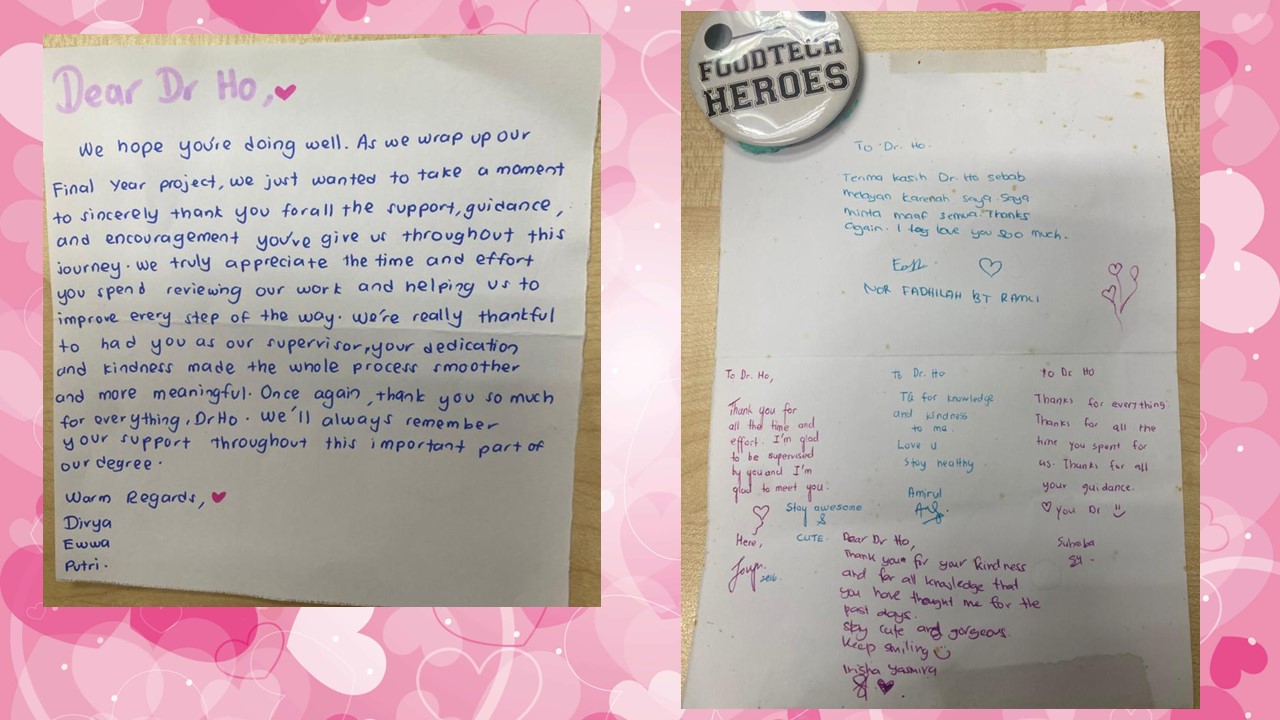 Dear Dr Ho,
We hope you're doing well. As we wrap up our
Final Year project, we just wanted to take a moment
to sincerely thank you forall the support, guidance,
and encouragement you've give us throughout this
journey. we truly appreciate the time and effort
you spend reviewing our work and helping us to
improve every step of the way. we're really thankful
to had you as our supervisor, your dedication
and kindness made the whole process smoother
and more meaningful. Once again, thank you so much
for everything, Dr Ho. We'll always remember
your support throughout this important part of
our degree.
Warm Regards,
Divya
Ewwa
Putri.
FOODTECH
HEROES
To Dr. Ho.
Terima kasih Dr. Ho sebab
melayan karenah saya. Saya
minta maaf semua. Thanks
again. I love you soo much.
NOR FADHILAH BT RAMLI
To Dr. Ho,
Thank you for
all the time and
effort. I'm glad
to be supervised
by you and I'm
glad to meet you.
Stay awesome
&
CUTE.
Here,
2016.
To Dr. Ho
TQ for knowledge
and kindness
to me.
Love u
Stay healthy
Amirul
To Dr Ho
Thanks for everything.
Thanks for all the
time you spent for
us. Thanks for all
your guidance.
you Dr
Suhaba
Dear Dr Ho,
Thank you for your kindness
and for all knowledge that
you have thought me for the
past days.
Stay cute and gorgeous.
Keep smiling
Yasmira